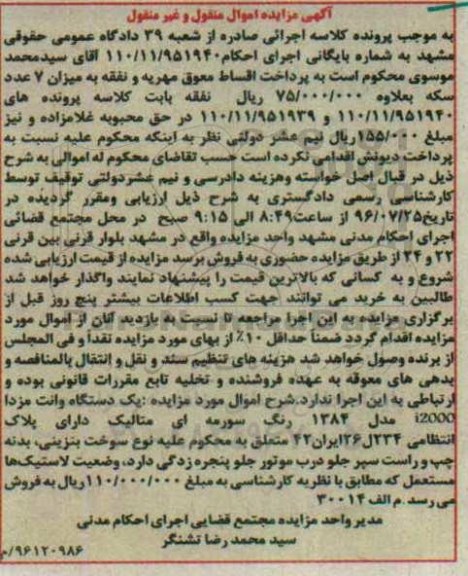 آگهی مزایده اموال منقول و غیر منقول
به موجب پرونده کلاسه اجرائی صادره از شعبه ۳۹ دادگاه عمومی حقوقی
مشهد به شماره بایگانی اجرای احکام۱۱۰/۱۱/۹۵۱۹۴۰ آقای سیدمحمد
موسوی محکوم است به پرداخت اقساط معوق مهریه و نفقه به میزان ۷ عدد
سکه بعلاوه ۷۵/۰۰۰/۰۰۰ ریال نفقه بابت کلاسه پرونده های
۱۱۰/۱۱/۹۵۱۹۴۰ و ۱۱۰/۱۱/۹۵۱۹۳۹ در حق محبوبه غلامزاده و نیز
مبلغ ۱۵۵/۰۰۰ریال نیم عشر دولتی نظر به اینکه محکوم علیه نسبت به
پرداخت دیونش اقدامی نکرده است حسب تقاضای محکوم له اموالی به شرح
ذیل در قبال اصل خواسته وهزینه دادرسی و نیم عشردولتی توقیف توسط
کارشناسی رسمی دادگستری به شرح ذیل ارزیابی ومقرر گردیده در
تاریخ۹۶/۰۷/۲۵ از ساعت۸:۴۹ الی ۹:۱۵ صبح در محل مجتمع قضائی
اجرای احکام مدنی مشهد واحد مزایده واقع در مشهد بلوار قرنی بین قرنی
۲۲ و ۲۴ از طریق مزایده حضوری به فروش برسد مزایده از قیمت ارزیابی شده
شروع و به کسانی که بالاترین قیمت را پیشنهاد نمایند واگذار خواهد شد
طالبین به خرید می توانند جهت کسب اطلاعات بیشتر پنج روز قبل از
برگزاری مزایده به این اجرا مراجعه تا نسبت به بازدید آنان از اموال مورد
مزایده اقدام گردد ضمناً حداقل ۱۰٪ از بهای مورد مزایده نقداً و فی المجلس
از برنده وصول خواهد شد هزینه های تنظیم سند و نقل و انتقال بالمناصفه و
بدهی های معوقه به عهده فروشنده و تخلیه تابع مقررات قانونی بوده و
ارتباطی به این اجرا ندارد.شرح اموال مورد مزایده :یک دستگاه وانت مزدا
i2000 مدل ۱۳۸۴ رنگ سورمه ای متالیک دارای پلاک
انتظامی ۲۳۴ل۳۶ایران۴۲ متعلق به محکوم علیه نوع سوخت بنزینی، بدنه
چپ و راست سپر جلو درب موتور جلو پنجره زدگی دارد، وضعیت لاستیک‌ها
مستعمل که مطابق با نظریه کارشناسی به مبلغ ۱۱۰/۰۰۰/۰۰۰ریال به فروش
می رسد .م الف ۳۰۰۱۴
مدیر واحد مزایده مجتمع قضایی اجرای احکام مدنی
سید محمد رضا تشنگر
۹۶۱۲۰۹۸۶/م